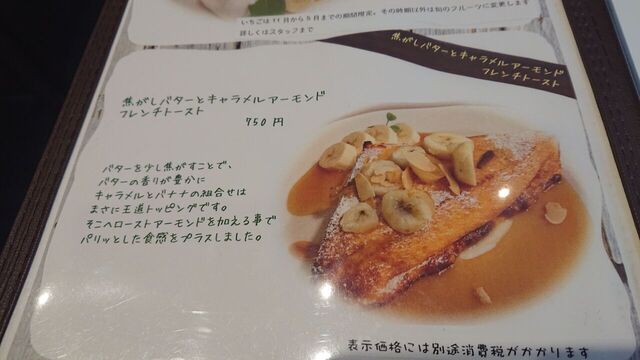 いちごは11月から5月までの期間限定。その時期以外は旬のフルーツに変更します
詳しくはスタッフまで
焦がしバターとキャラメルアーモンド
フレンチトースト
焦がしバターとキャラメルアーモンド
フレンチトースト
750円
バターを少し焦がすことで、
バターの香りが豊かに
キャラメルとバナナの組合せは
まさに王道トッピングです。
そこへローストアーモンドを加える事で
パリッとした食感をプラスしました。
表示価格には別途消費税がかかります